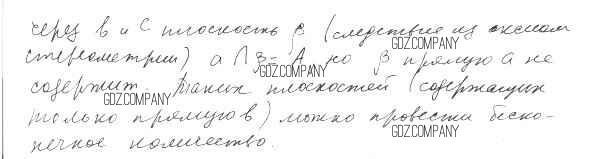 через в и С плоскость β (следствие из аксиом
стереометрии) а ∩ β = А но β прямую а не
содержит. Таких плоскостей (содержащих
только прямую в) можно провести беско-
нечное количество.
GDZ.COMPANY
GDZ.COMPANY
GDZ.COMPANY
GDZ.COMPANY
GDZ.COMPANY